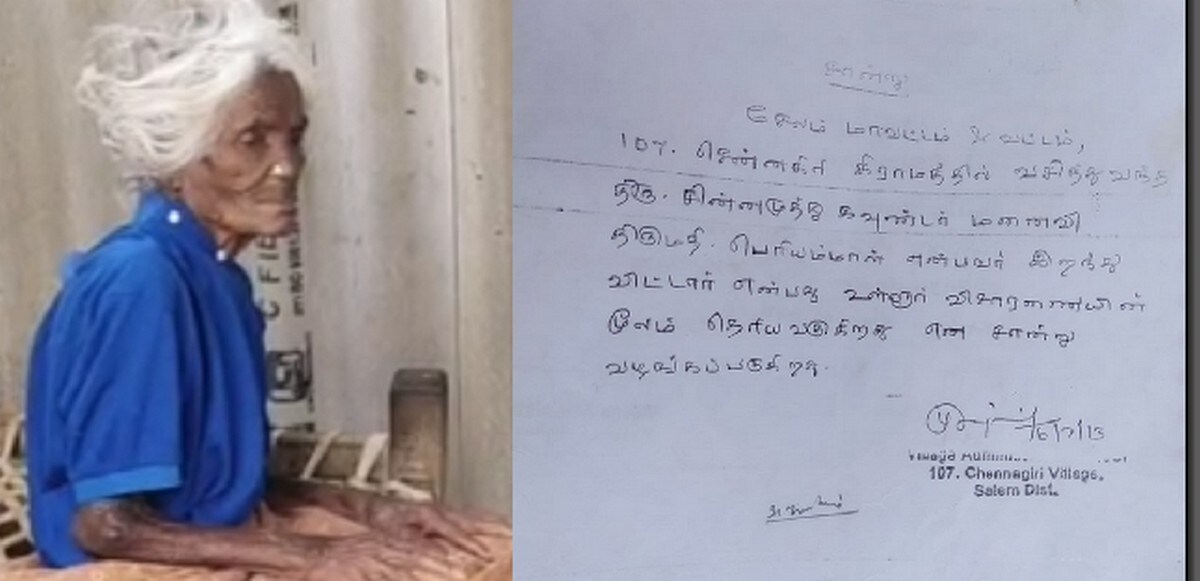 சான்று
சேலம் மாவட்டம் & வட்டம்,
107. சென்னகிரி கிராமத்தில் வசித்து வந்த
திரு. சின்னமுத்து கவுண்டர் மனைவி
திருமதி. பெரியம்மாள் என்பவர் இறந்து
விட்டார் என்பது உள்ளூர் விசாரணையின்
மூலம் தெரிய வருகிறது என சான்று
வழங்கப்படுகிறது.
107. Chennagiri Village,
Salem Dist.